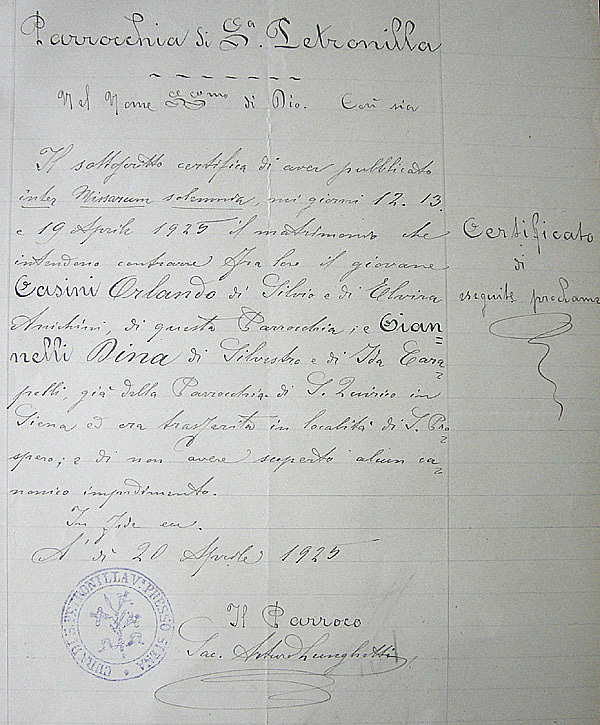 Parrocchia di S.ª Petronilla
Nel Nome di Dio. Così sia
Il sottoscritto certifica di aver pubblicato
inter Missarum solemnia, nei giorni 12. 13.
e 19 Aprile 1925 il matrimonio che
intendono contrarre fra loro il giovane
Casini Orlando di Silvio e di Elvira
Anichini, di questa Parrocchia; e Gian=
nelli Dina di Silvestro e di Ida Cara=
pelli, già della Parrocchia di S. Quirico in
Siena ed ora trasferita in località di S. Pro=
spero; e di non avere scoperto alcun ca=
nonico impedimento.
In fide ecc.
A dì 20 Aprile 1925
Il Parroco
Sac. Arturo Lunghetti
Certificato
di
eseguite proclame
CURA DI S. PETRONILLA V. PRESSO SIENA